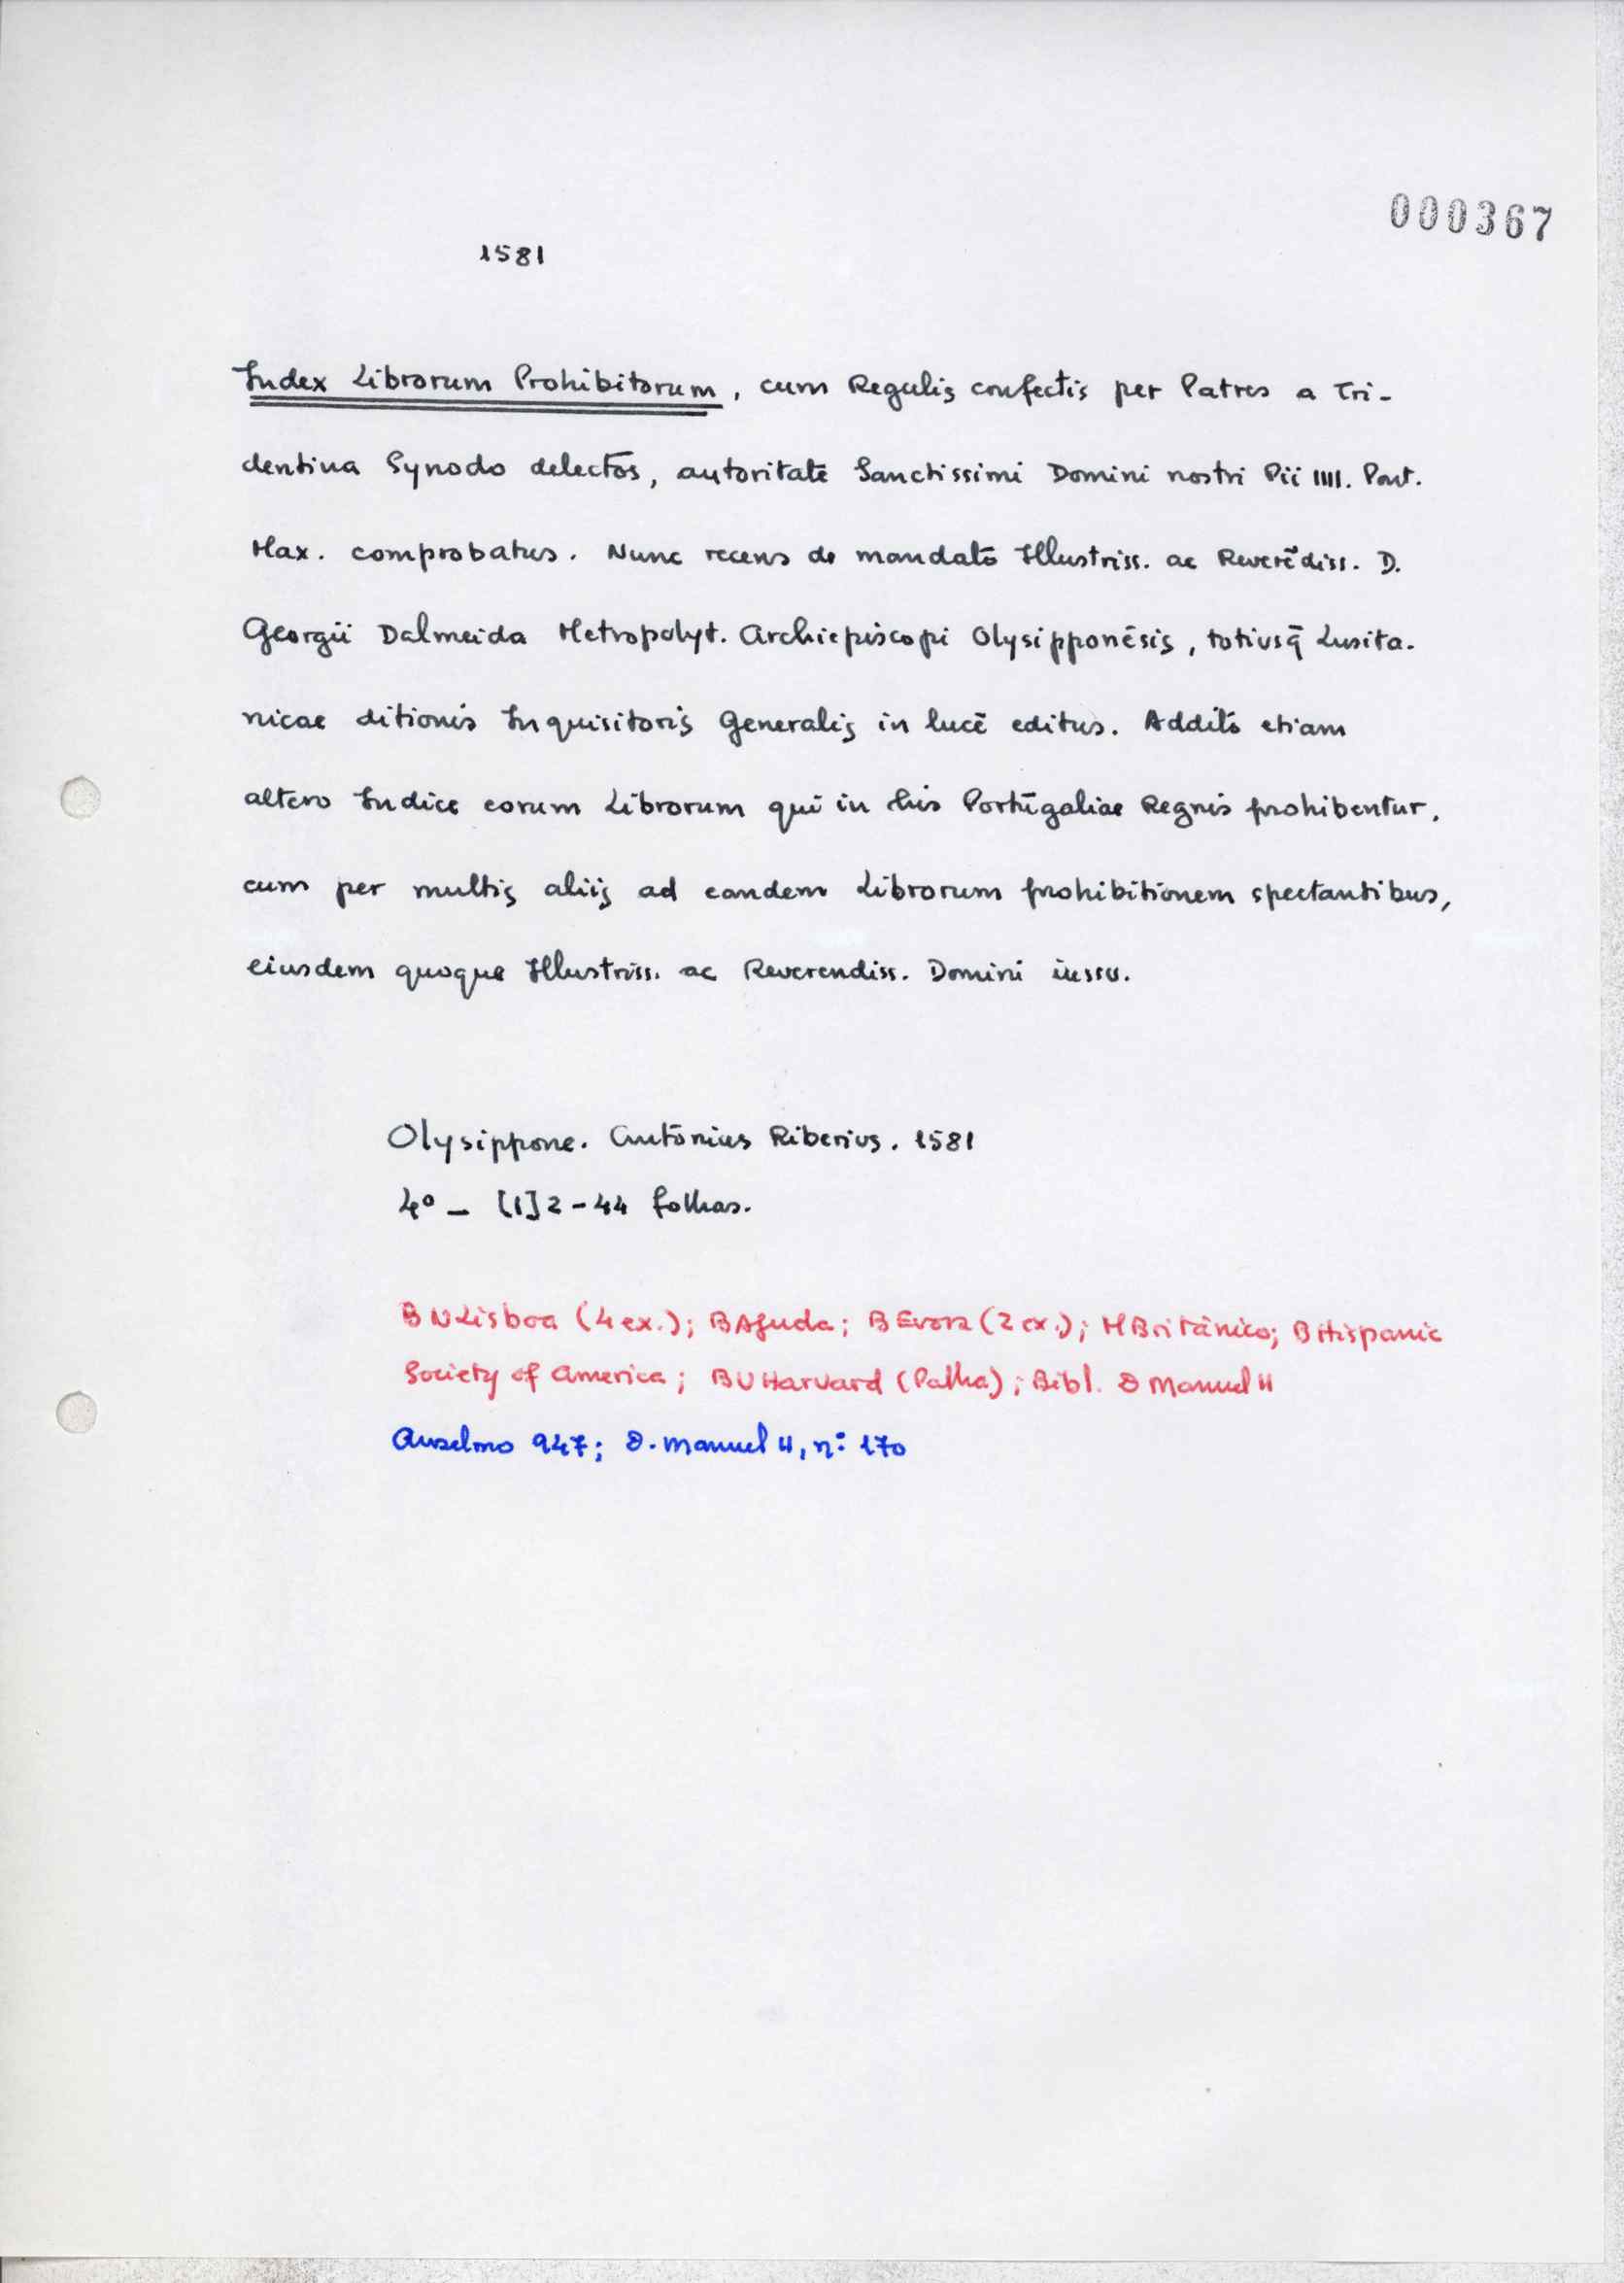 000367
1581
Index Librorum Prohibitorum, cum Regulis confectis per Patres a Tri-
dentina Synodo delectos, autoritate Sanctissimi Domini nostri Pii IIII. Pont.
Max. comprobatus. Nunc recens de mandato Illustriss. ac Reverẽdiss. D.
Georgii Dalmeida Metropolyt. Archiepiscopi Olysipponẽsis, totiusq̃ Lusita-
nicae ditionis Inquisitoris Generalis in lucẽ editus. Addito etiam
altero Indice eorum Librorum qui in his Portugaliae Regnis prohibentur,
cum per multis aliis ad eandem Librorum prohibitionem spectantibus,
eiusdem quoque Illustriss. ac Reverendiss. Domini iussu.
Olysippone. Antonius Riberius. 1581
4º — [1] 2-44 folhas.
BNLisboa (4 ex.); BAjuda; BEvora (2 ex.); MBritânico; BHispanic
Society of America; BUHarvard (Palha); Bibl. D Manuel II
Anselmo 947; D. Manuel II, nº 170